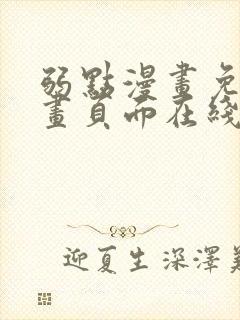 弱點漫畫免
畫頁而在綫
迎夏生深澤美